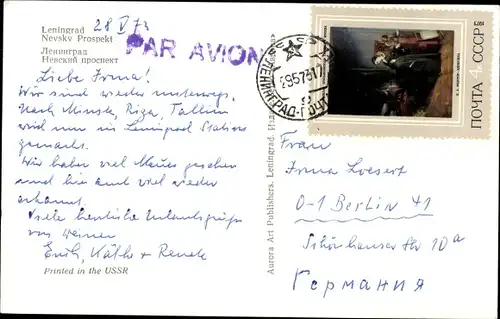 28 V 73
Leningrad
Nevsky Prospekt
Ленинград
Невский проспект
PAR AVION
Liebe Irma!
Wir sind wieder unterwegs.
Nach Minsk, Riga, Tallinn
wird nun in Leningrad Station
gemacht.
Wir haben viel Neues gesehen
und hie und viel wieder
erkannt.
Viele herzliche Urlaubsgrüße
von
Erich, Käthe + Renate
Printed in the USSR
Aurora Art Publishers. Leningrad.
ЛЕНИНГРАД
ПОЧТА 4 СССР
1973
Frau
Irma
0-1 Berlin 41
Schönhauser Str 10a
Германия